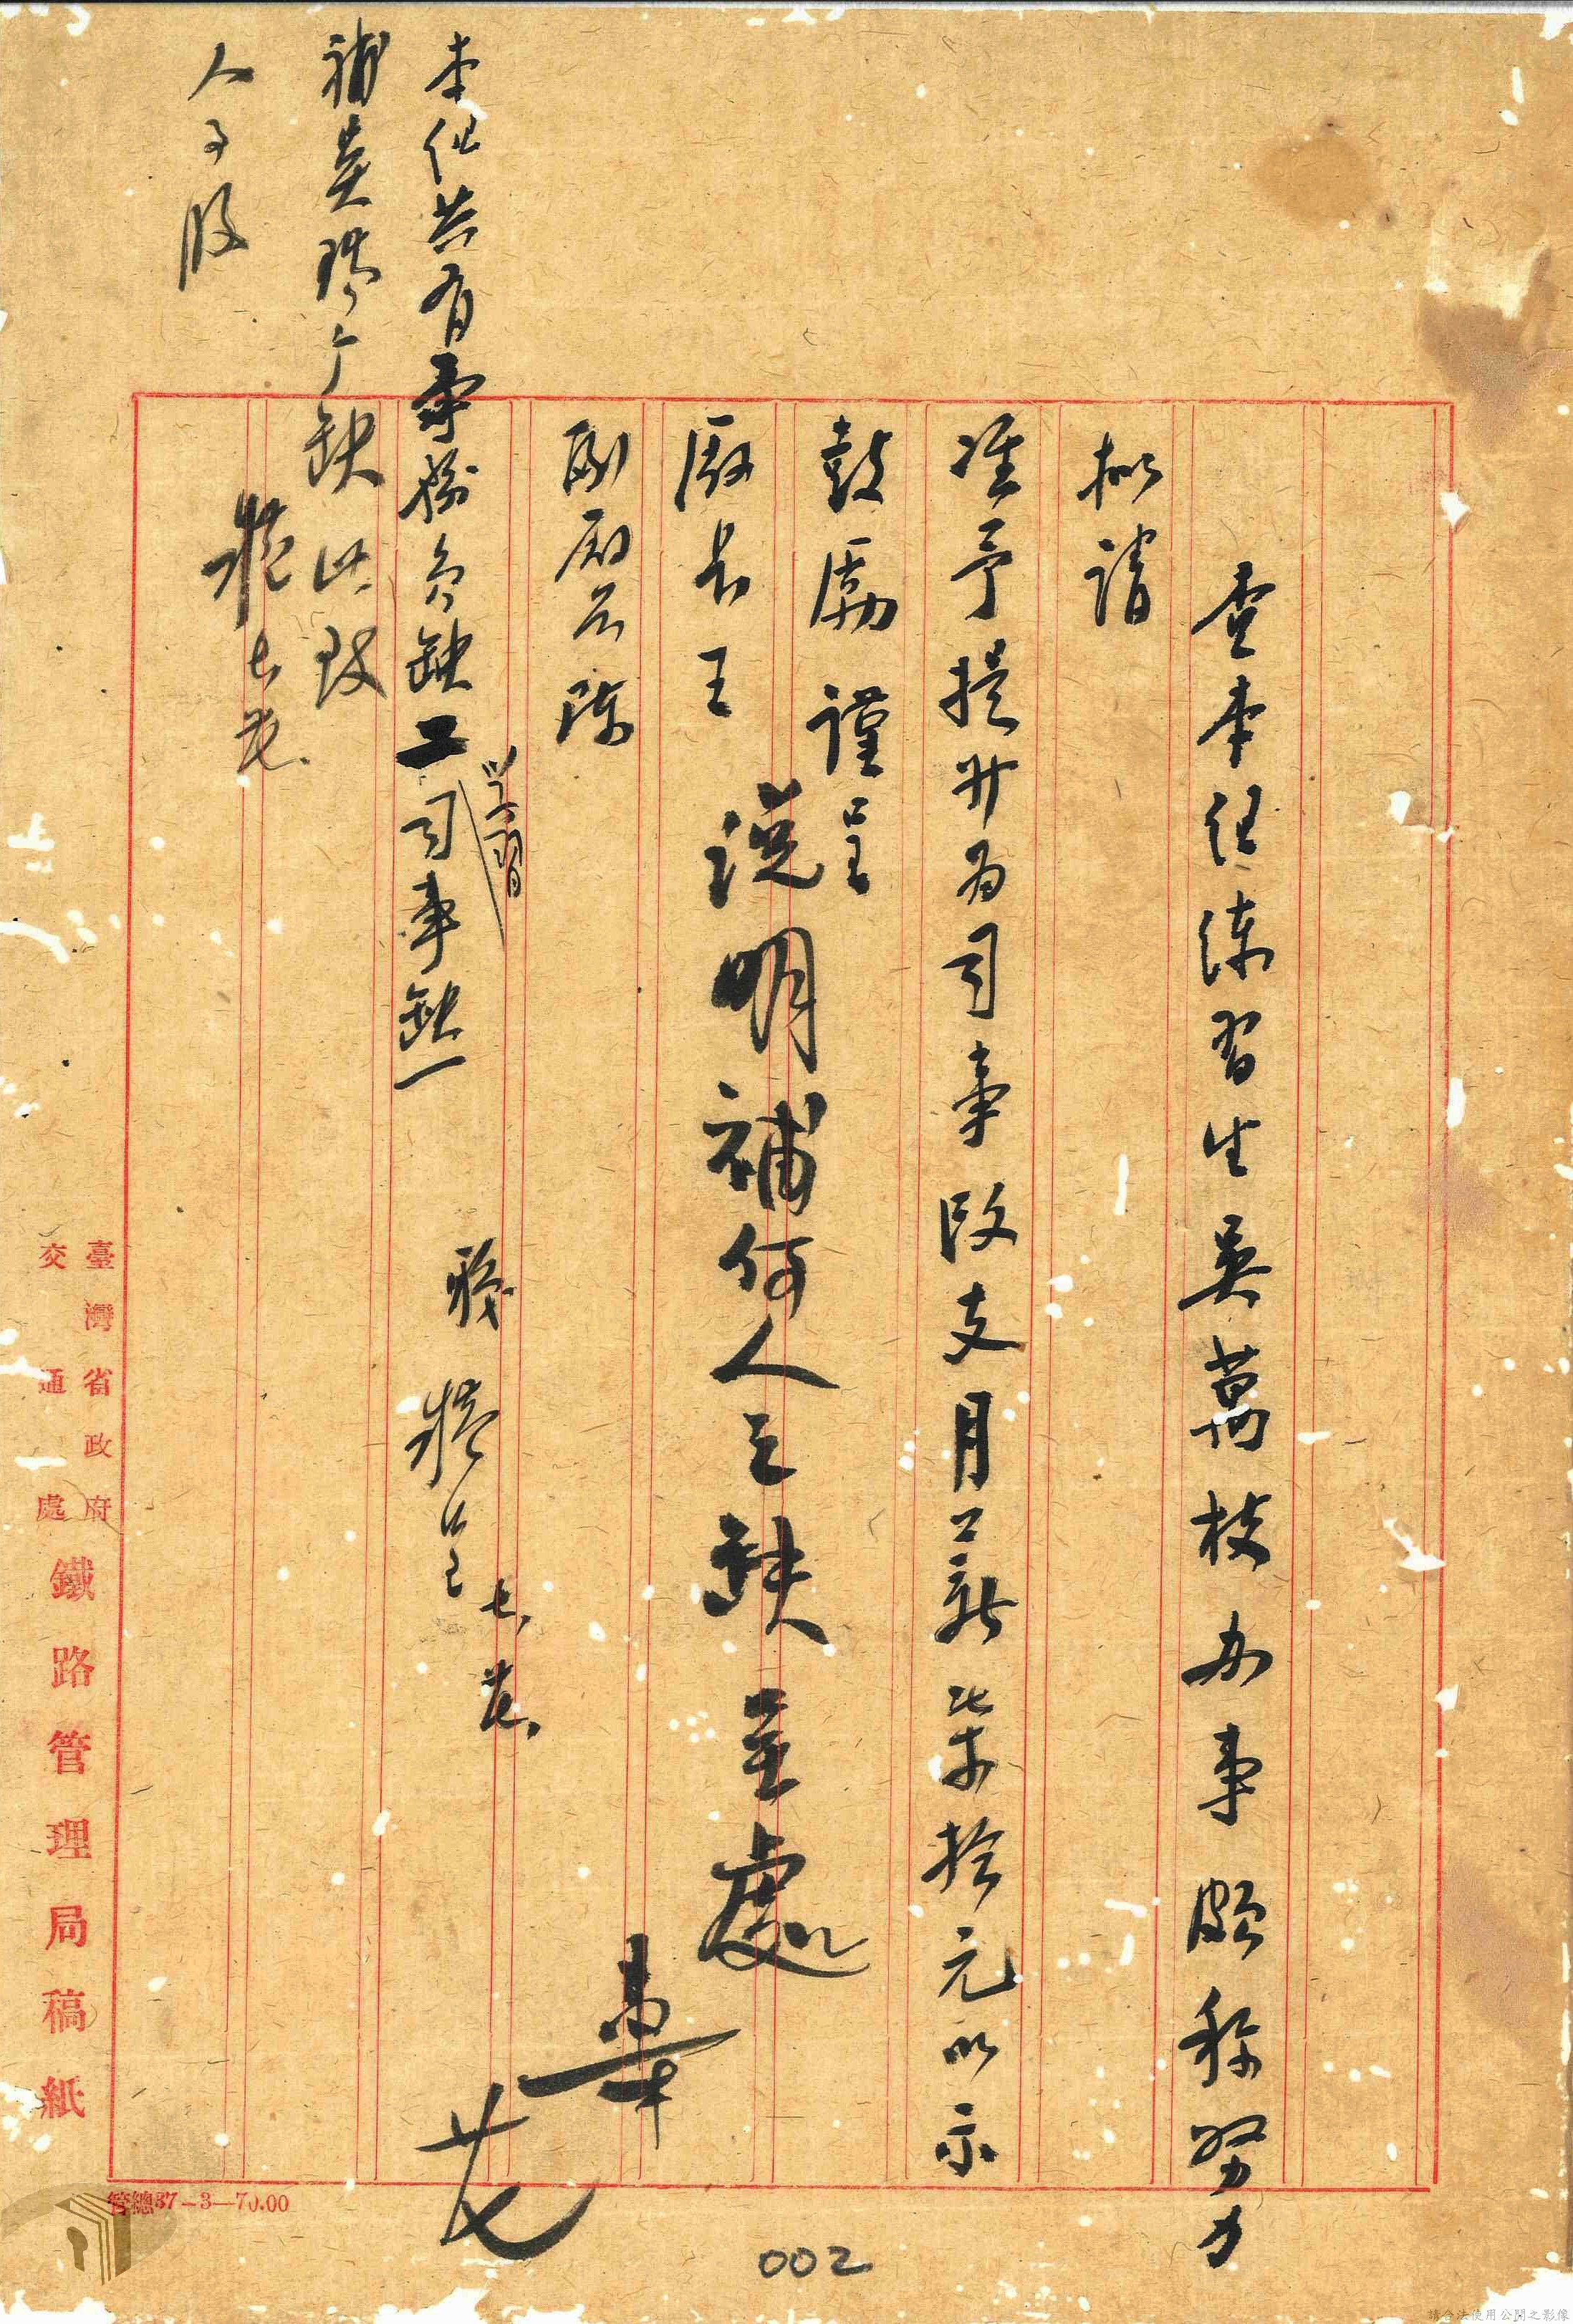 查本組練習生吳萬枝办事頗稱努力
擬請
准予提升為司事改支月工薪柒拾元以示
鼓勵　謹呈
廠長王
副廠長陳
說明補何人之缺呈處
華
廿七
職 蔣 呈 七、廿、
本組共有事務員缺二司事缺一
學習
補黃瑞缺此致
人事股
七 廿
臺灣省政府
交通處
鐵路管理局稿紙
管總37-3-70.00
002
請合法使用公開之影像